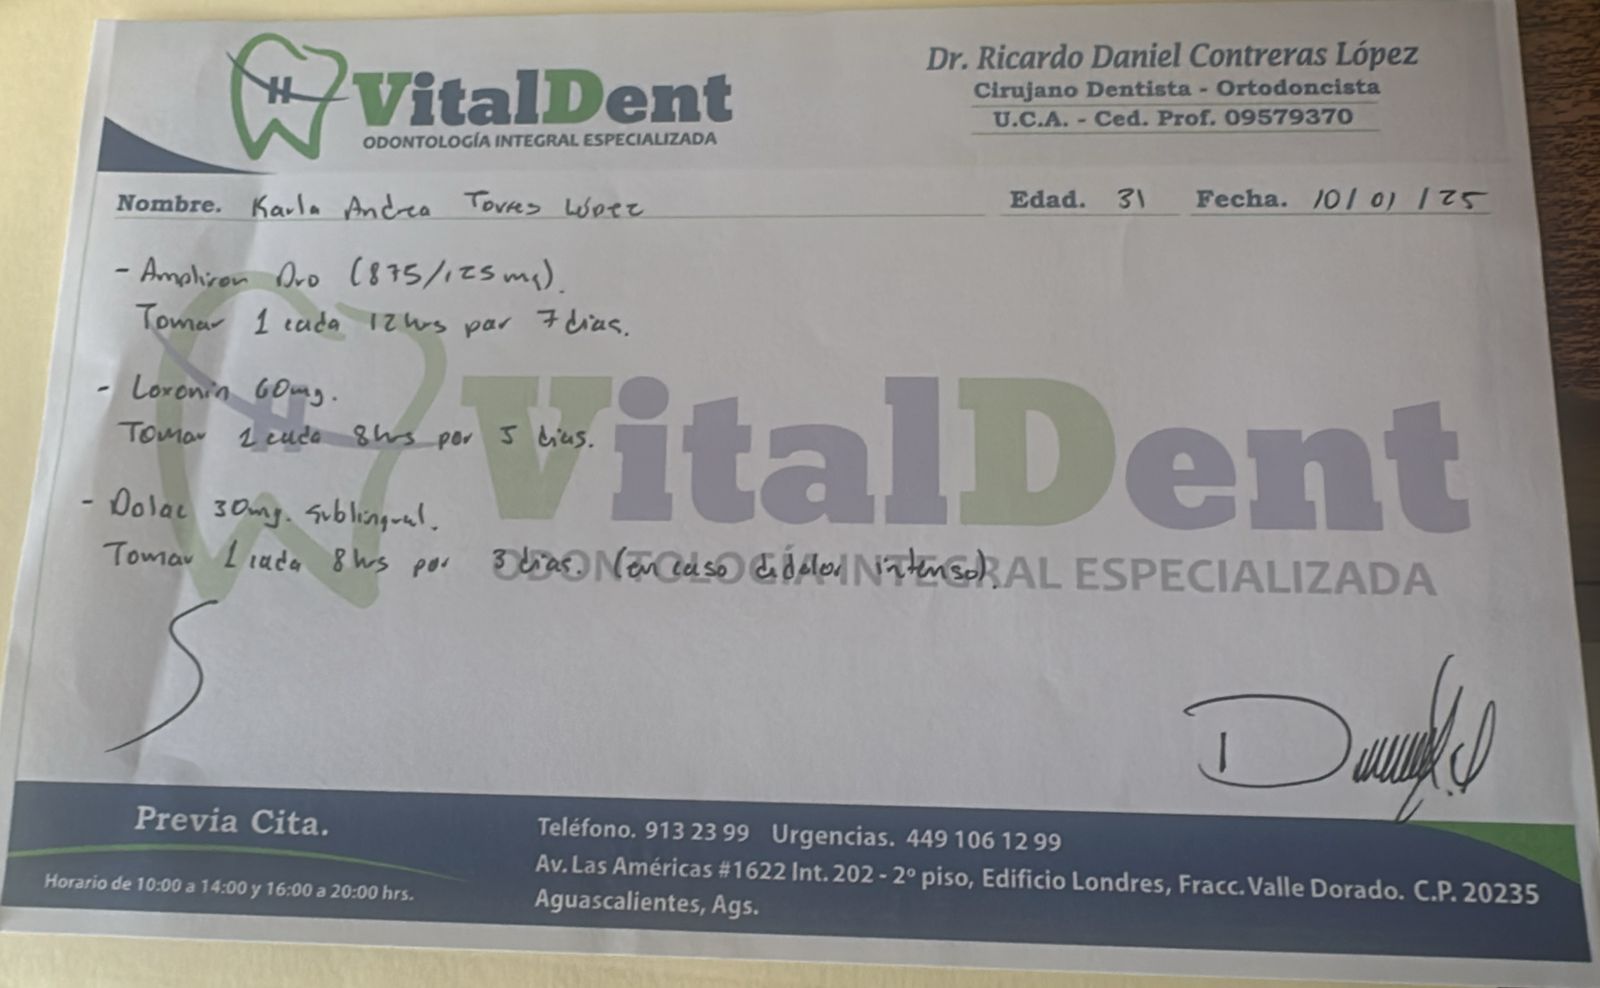 VitalDent
ODONTOLOGÍA INTEGRAL ESPECIALIZADA
Dr. Ricardo Daniel Contreras López
Cirujano Dentista - Ortodoncista
U.C.A. - Ced. Prof. 09579370
Nombre. Karla Andrea Torres López Edad. 31 Fecha. 10/01/25
- Amphiron Duo (875/125 mg).
Tomar 1 cada 12hrs por 7 dias.
- Loxonin 60mg.
Tomar 1 cada 8hrs por 5 dias.
- Dolac 30mg. Sublingual.
Tomar 1 cada 8hrs por 3 dias. (en caso de dolor intenso).
VitalDent
ODONTOLOGÍA INTEGRAL ESPECIALIZADA
Previa Cita.
Horario de 10:00 a 14:00 y 16:00 a 20:00 hrs.
Teléfono. 913 23 99 Urgencias. 449 106 12 99
Av. Las Américas #1622 Int. 202 - 2º piso, Edificio Londres, Fracc. Valle Dorado. C.P. 20235
Aguascalientes, Ags.